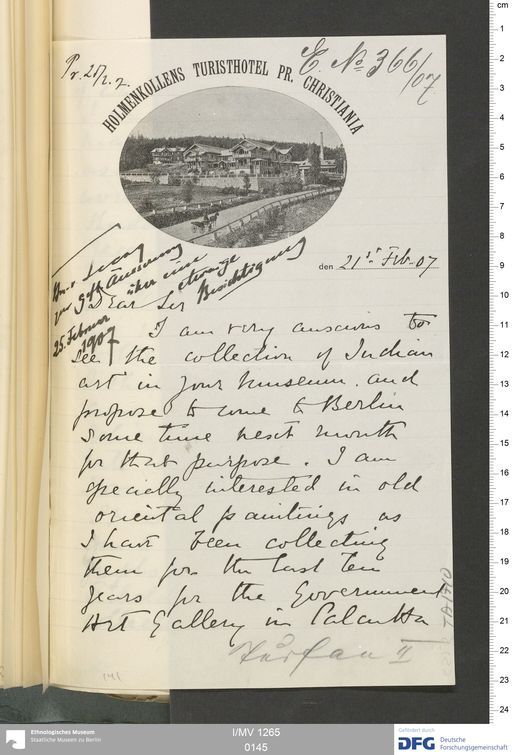 Pr. 25/2. 7.
E. No 366/07.
HOLMENKOLLENS TURISTHOTEL PR. CHRISTIANIA
den 21st Feb. 07
zur gefl. Äusserung
über eine
etwaige
Besichtigung
25. Februar
1907
Dear Sir
I am very anxious to
see the collection of Indian
art in your museum. and
propose to come to Berlin
some time next month
for that purpose. I am
specially interested in old
oriental paintings as
I have been collecting
them for the last ten
years for the Government
Art Gallery in Calcutta
Turfan II
141
cm
1
2
3
4
5
6
7
8
9
10
11
12
13
14
15
16
17
18
19
20
21
22
23
24
Ethnologisches Museum
Staatliche Museen zu Berlin
I/MV 1265
0145
Gefördert durch
DFG Deutsche
Forschungsgemeinschaft